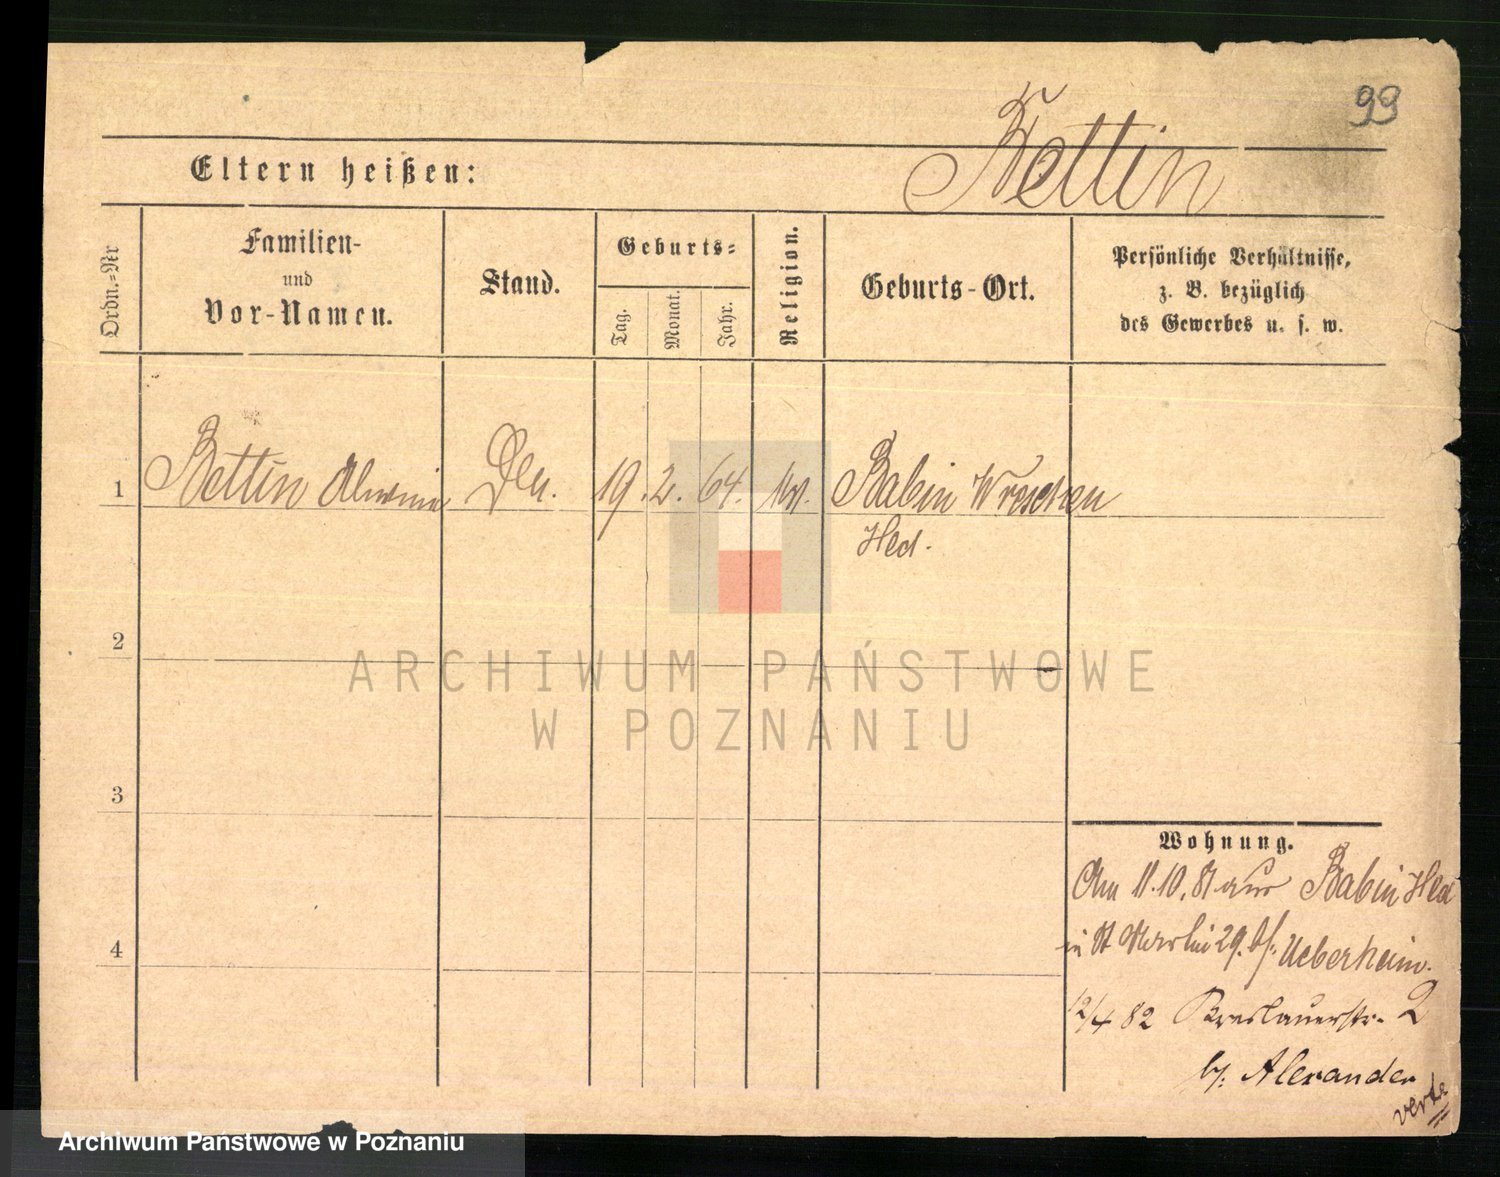 99
Bettin
Eltern heißen:
Ordn.-Nr
Familien-
und
Vor-Namen.
Stand.
Geburts-
Tag.
Monat.
Jahr.
Religion.
Geburts-Ort.
Persönliche Verhältnisse,
z. B. bezüglich
des Gewerbes u. s. w.
1 Bettin Alwine 19. 2. 64. Babin Wreschen
Hld.
2
ARCHIWUM PAŃSTWOWE
W POZNANIU
3
Wohnung.
Am 11.10.81 aus Babin Hld
in St Martin 29. bf. Ueberheim.
4
12/4 82 Breslauerstr. 2
bf. Alexander
verte
Archiwum Państwowe w Poznaniu